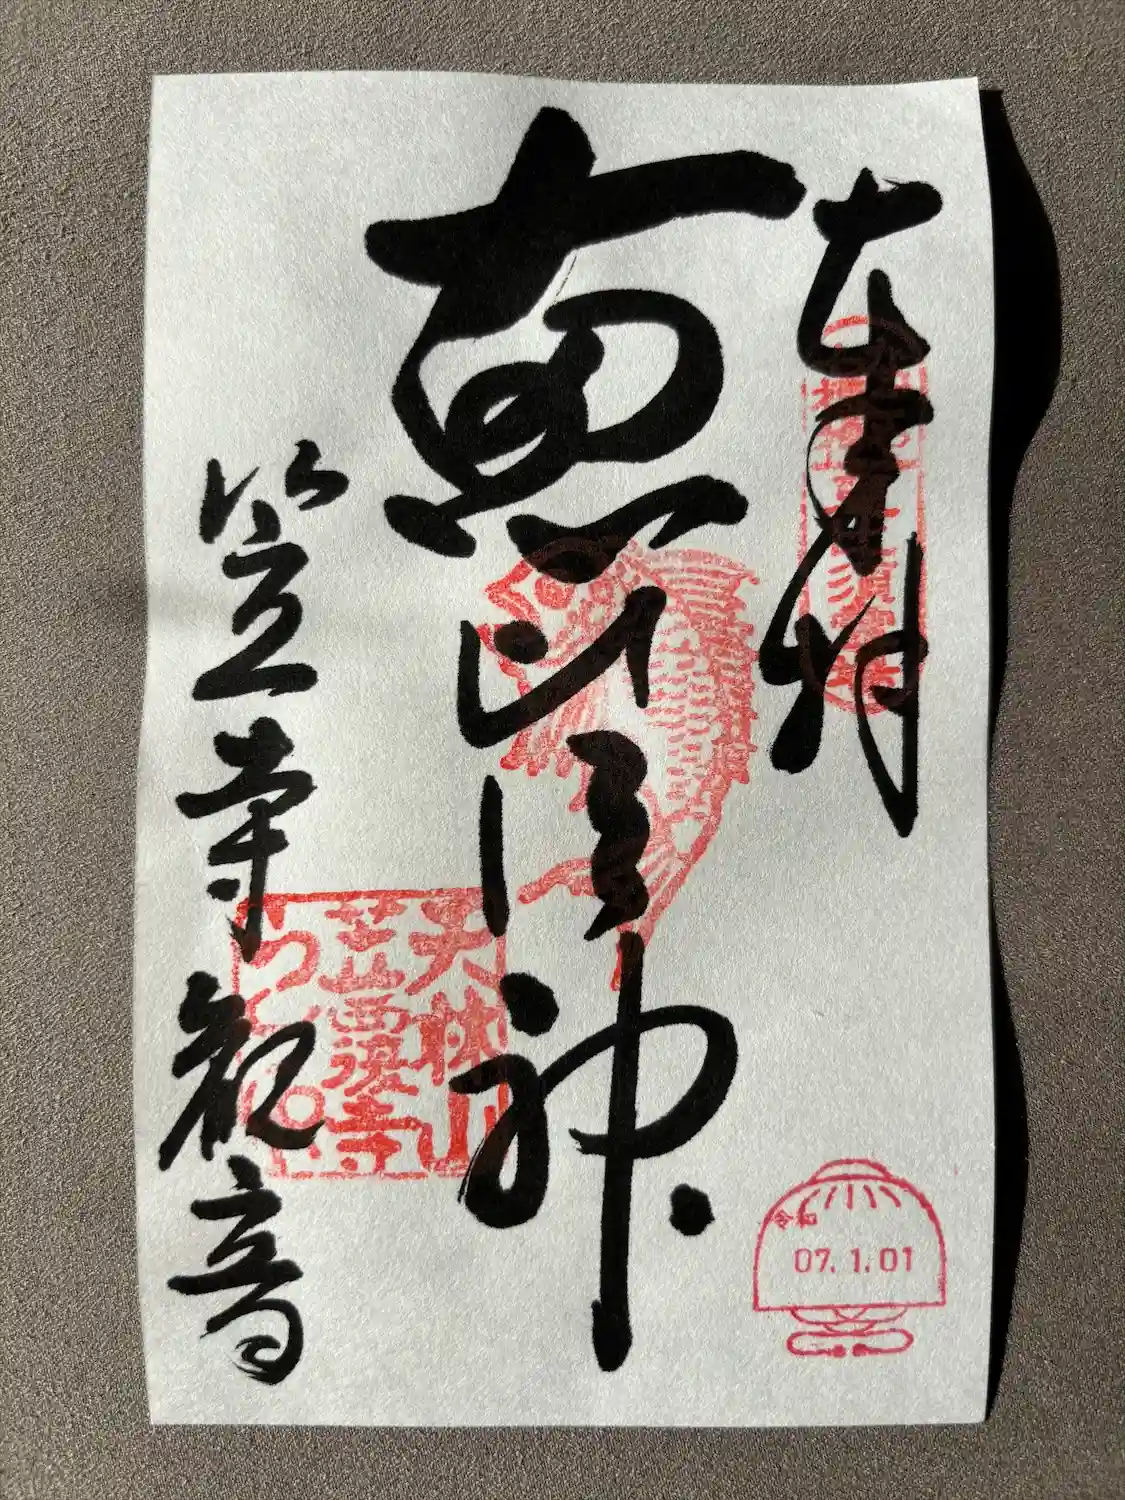 奉拝
恵比寿神
笠寺観音
天林山
笠覆寺
令和
07.1.01